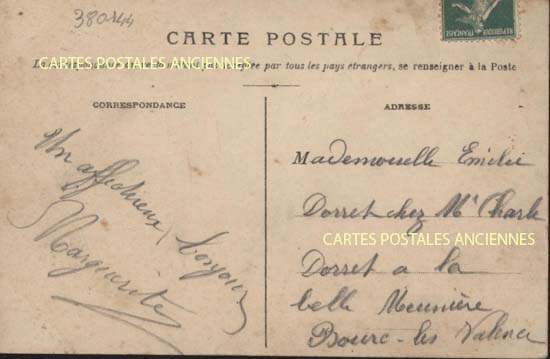 380144
CARTE POSTALE
CARTES POSTALES ANCIENNES
par tous les pays étrangers, se renseigner à la Poste
CORRESPONDANCE
ADRESSE
Un affectueux bonjour
Marguerite
Mademoiselle Emilie
Dorret chez Mr Charle
CARTES POSTALES ANCIENNES
Dorret a la
belle Meunière
Bourc-les Valence